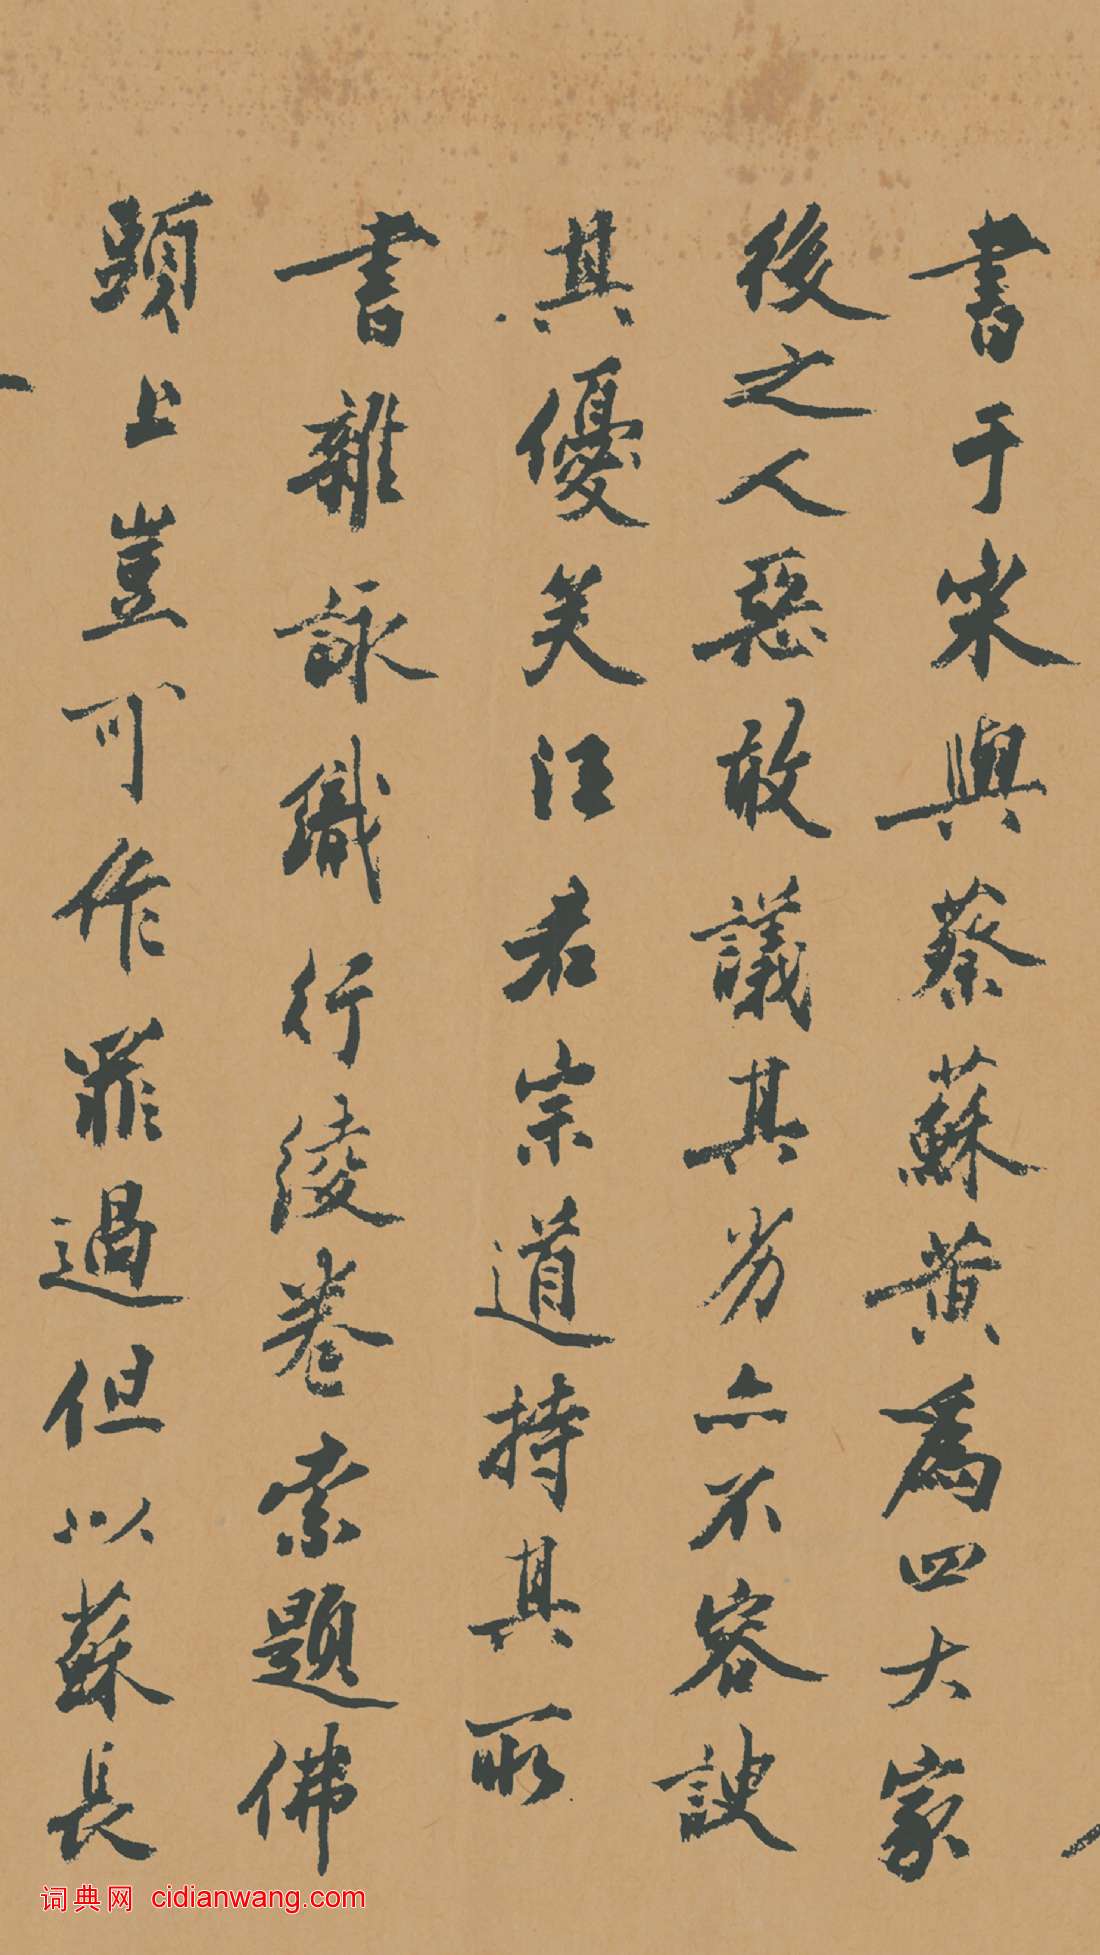 書于宋與蔡蘇黃為四大家
後之人惡敢議其劣亦不容諛
其優矣汪君宗道持其所
書雜詠織行綾卷索題佛
頭上豈可作罪過但以蘇長
词典网 cidianwang.com